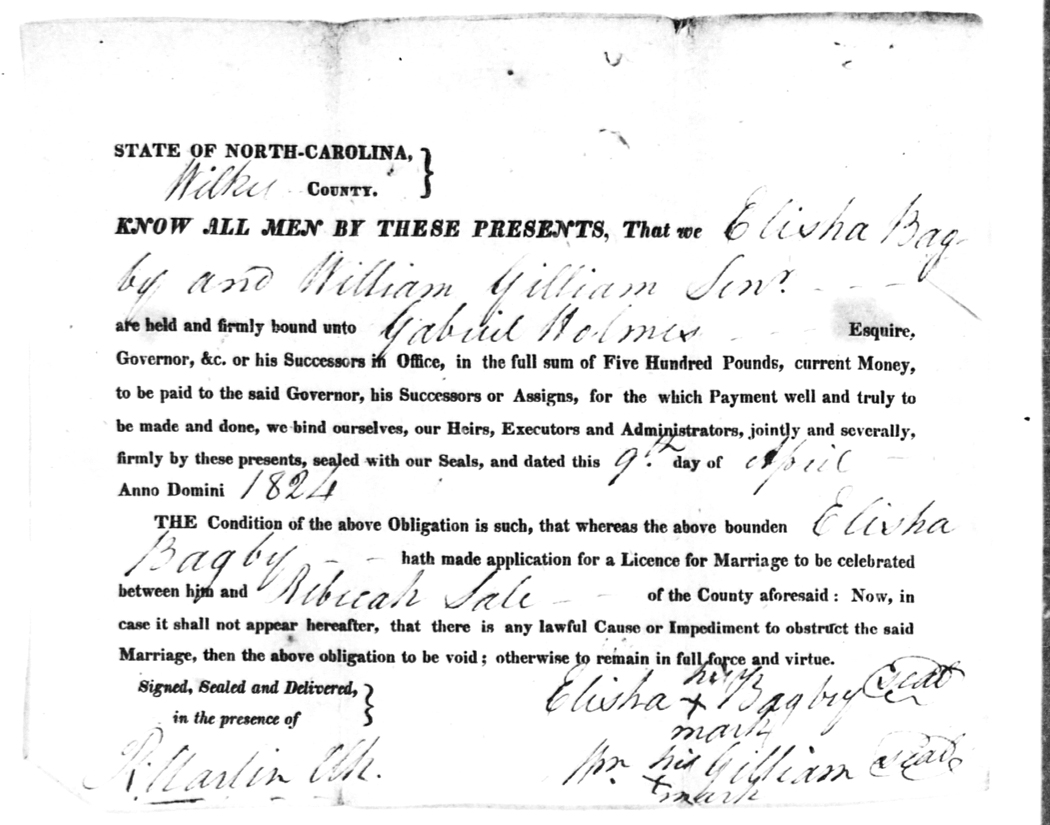 STATE OF NORTH-CAROLINA, }
Wilkes COUNTY.
KNOW ALL MEN BY THESE PRESENTS, That we Elisha Bag-
by and William Gilliam Senr. - - -
are held and firmly bound unto Gabriel Holmes - - Esquire,
Governor, &c. or his Successors in Office, in the full sum of Five Hundred Pounds, current Money,
to be paid to the said Governor, his Successors or Assigns, for the which Payment well and truly to
be made and done, we bind ourselves, our Heirs, Executors and Administrators, jointly and severally,
firmly by these presents, sealed with our Seals, and dated this 9.th day of April -
Anno Domini 1824
THE Condition of the above Obligation is such, that whereas the above bounden Elisha
Bagby - - hath made application for a Licence for Marriage to be celebrated
between him and Rebecah Sale - - of the County aforesaid : Now, in
case it shall not appear hereafter, that there is any lawful Cause or Impediment to obstruct the said
Marriage, then the above obligation to be void ; otherwise to remain in full force and virtue.
Signed, Sealed and Delivered, }
in the presence of
R. Martin Clk.
his
Elisha + Bagby seal
mark
Wm. his Gilliam seal
+
mark